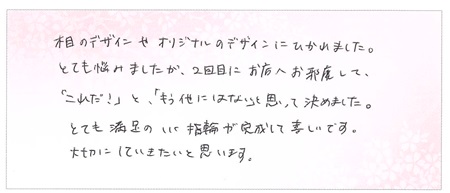 木目のデザインやオリジナルのデザインにひかれました。
とても悩みましたが、2回目にお店へお邪魔して、
「これだ!」と、「もう他にはない」と思って決めました。
とても満足のいく指輪が完成して喜しいです。
大切にしていきたいと思います。